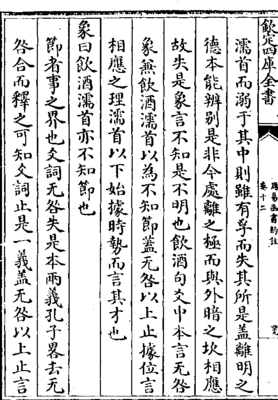 欽定四庫全書
卷十二
濡首而溺于其中則雖有孚而失其所是蓋離明之
德本能辨别是非今處離之極而與外暗之坎相應
故失是象言不知是不明也飲酒句爻中本言无咎
象無飲酒濡首以為不知節蓋无咎以上止據位言
相應之理濡首以下始據時勢而言其才也
象曰飲酒濡首亦不知節也
節者事之界也爻詞无咎失是本兩義孔子畧去无
咎合而釋之可知爻詞止是一義蓋无咎以上止言